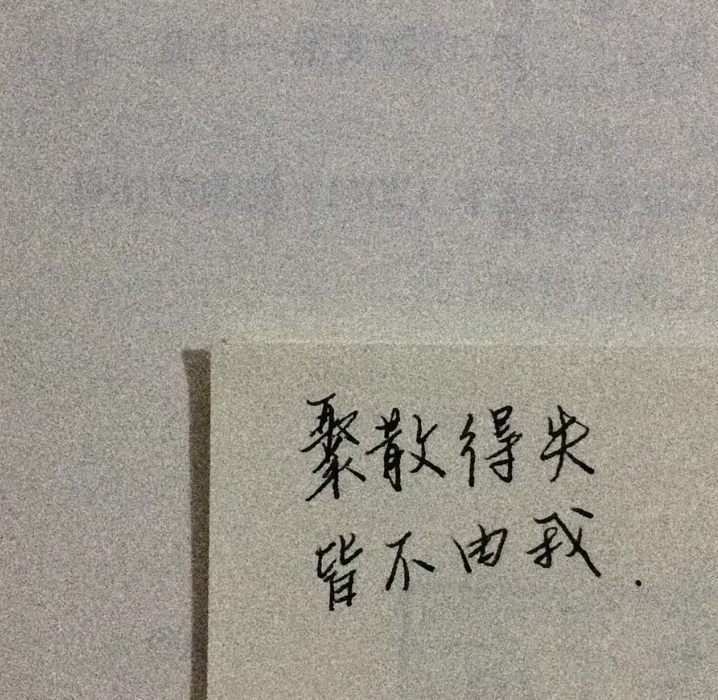 聚散得失
皆不由我.